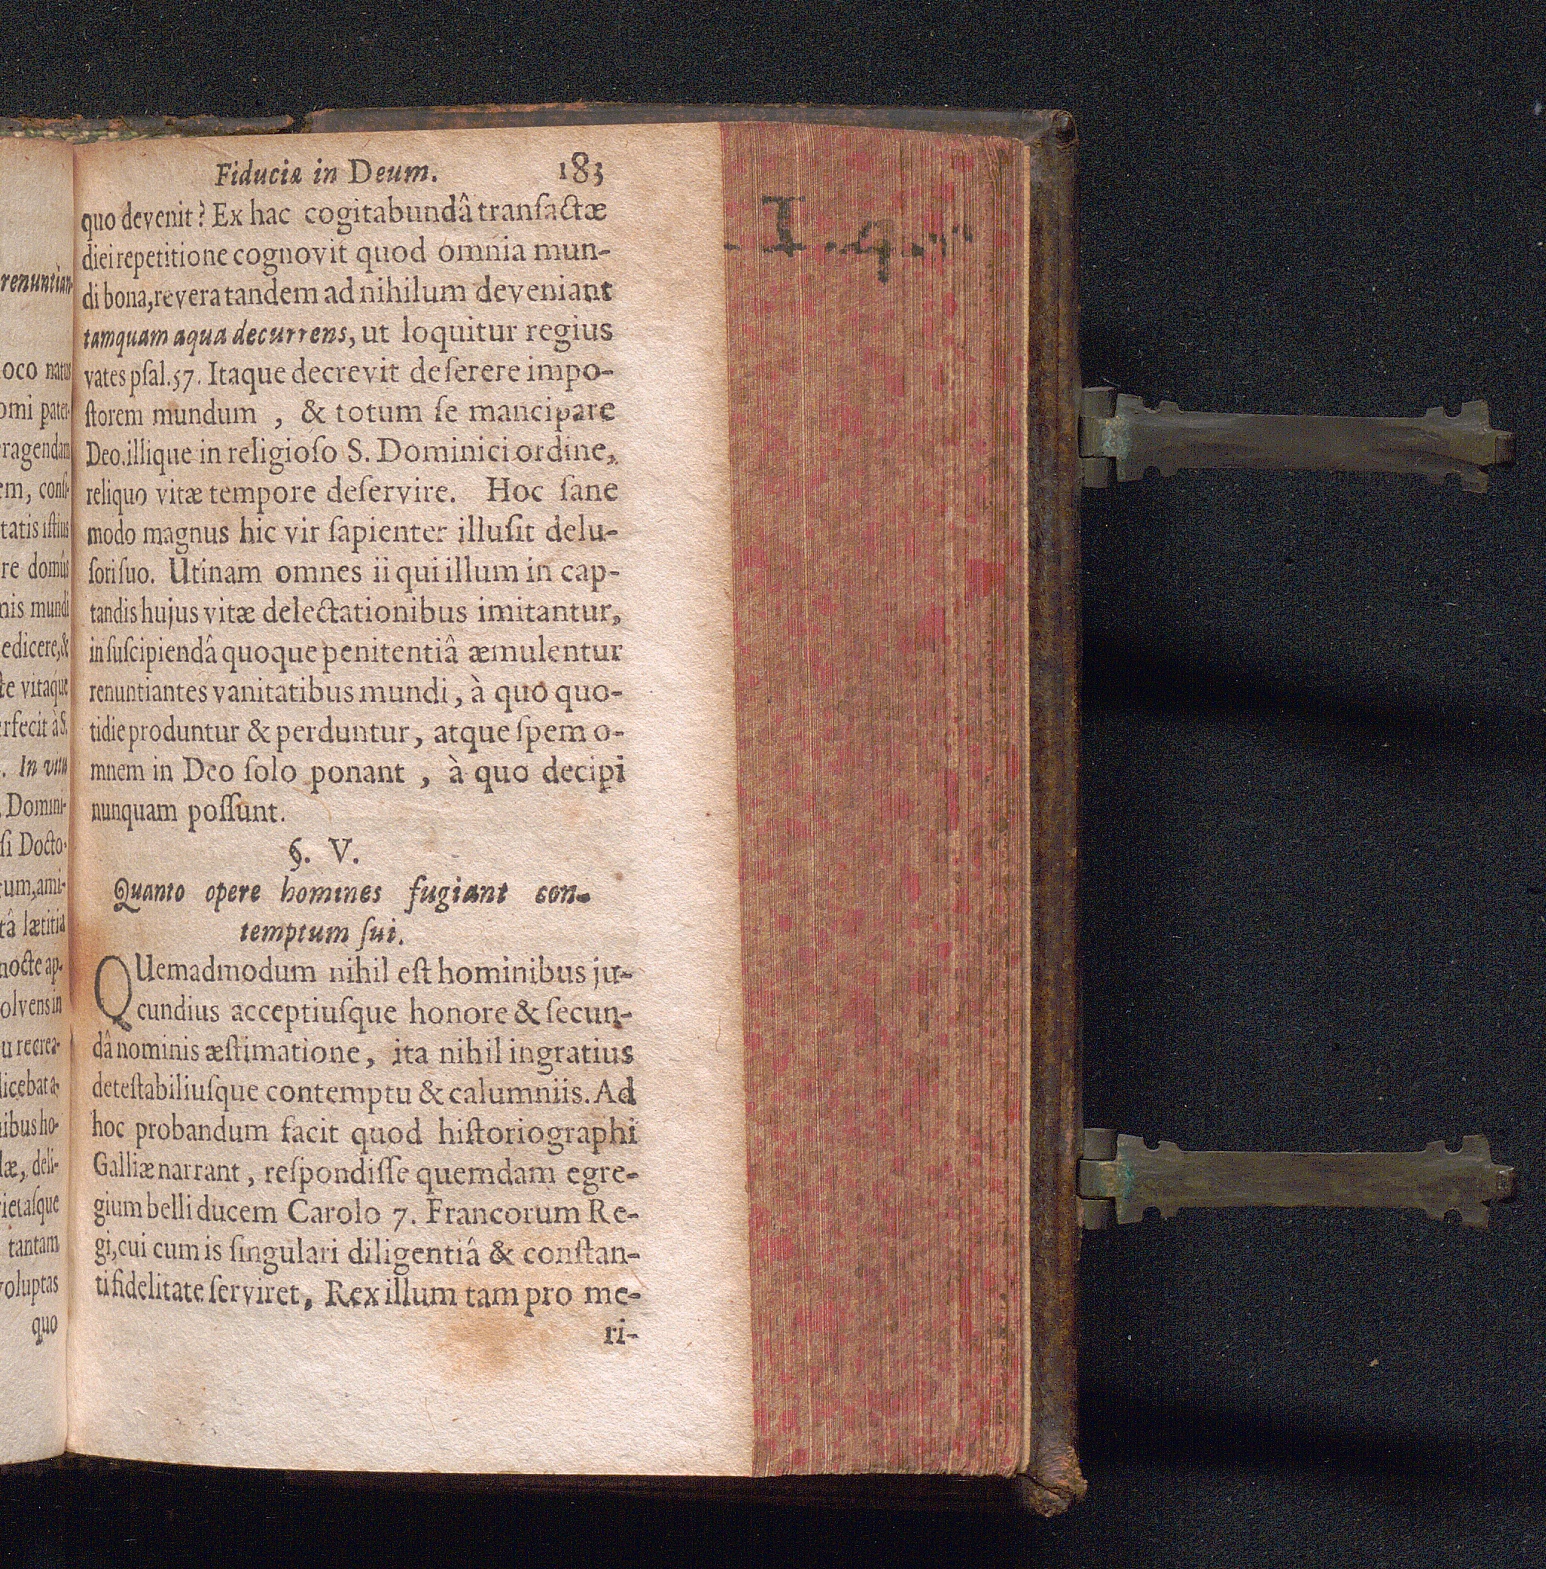 Fiduciæ in Deum. 183
quo devenit? Ex hac cogitabundâ tranſactæ
diei repetitione cognovit quod omnia mun-
di bona, revera tandem ad nihilum deveniant
tamquam aqua decurrens, ut loquitur regius
vates pſal. 57. Itaque decrevit deſerere impo-
ſtorem mundum , & totum ſe mancipare
Deo. illique in religioſo S. Dominici ordine,
reliquo vitæ tempore deſervire. Hoc ſane
modo magnus hic vir ſapienter illuſit delu-
ſori ſuo. Utinam omnes ii qui illum in cap-
tandis hujus vitæ delectationibus imitantur,
in ſuſcipiendâ quoque penitentiâ æmulentur
renuntiantes vanitatibus mundi, à quo quo-
tidie produntur & perduntur, atque ſpem o-
mnem in Deo ſolo ponant , à quo decipi
nunquam poſſunt.
§. V.
Quanto opere homines fugiant con-
temptum ſui.
QUemadmodum nihil eſt hominibus ju-
cundius acceptiuſque honore & ſecun-
dâ nominis æſtimatione, ita nihil ingratius
deteſtabiliuſque contemptu & calumniis. Ad
hoc probandum facit quod hiſtoriographi
Galliæ narrant, reſpondiſſe quemdam egre-
gium belli ducem Carolo 7. Francorum Re-
gi, cui cum is ſingulari diligentiâ & conſtan-
ti fidelitate ſerviret, Rex illum tam pro me-
ri-
renuntian-
oco natus
omi pater-
ragendam
em, conſi-
tatis iſtius
re domûs
nis mundi
edicere, &
te vitaque
rfecit à S.
. In vita
. Domini-
ſi Docto-
tum, ami-
tâ lætitiâ
nocte ap-
olvens in
u recrea-
licebat a-
nibus ho-
læ, deli-
rietaſque
tantam
voluptas
quo